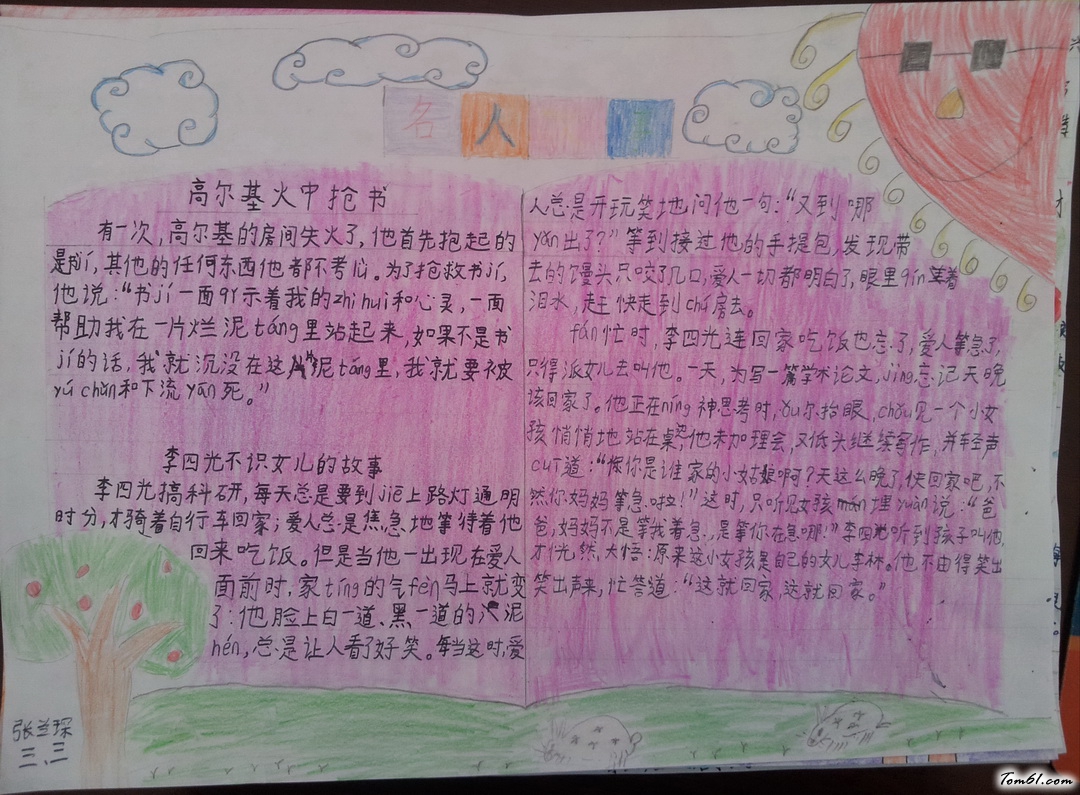 名人
高尔基火中抢书
有一次,高尔基的房间失火了,他首先抱起的
是书jí,其他的任何东西他都不考心。为了抢救书jí,
他说:“书jí一面qǐ示着我的zhì huì和心灵,一面
帮助我在一片烂泥táng里站起来,如果不是书
jí的话,我就沉没在这泥táng里,我就要被
yú chǔn和下流yān死。”
李四光不识女儿的故事
李四光搞科研,每天总是要到jiē上路灯通明
时分,才骑着自行车回家;爱人总是焦急地等待着他
回来吃饭。但是当他一出现在爱人
面前时,家tíng的气fēn马上就变
了:他脸上白一道、黑一道的泥
hén,总是让人看了好笑。每当这时,爱
人总是开玩笑地问他一句:“又到哪
yǎn出了?”等到接过他的手提包,发现带
去的馒头只咬了几口,爱人一切都明白了,眼里qín着
泪水,赶快走到chú房去。
fán忙时,李四光连回家吃饭也忘了,爱人等急了,
只得派女儿去叫他。一天,为写一篇学术论文,jìng忘记天晚
该回家了。他正在níng神思考时,ǒu尔抬眼,chǒu见一个小女
孩悄悄地站在桌旁,他未加理会,又低头继续写作,并轻声
cuī道:“你是谁家的小姑娘啊?天这么晚了,快回家吧,不
然你妈妈等急啦!”这时,只听见女孩mán埋yuàn说:“爸
爸,妈妈不是等我着急,是等你在急哪!”李四光听到孩子叫他,
才恍然大悟:原来这小女孩是自己的女儿李林。他不由得笑出
笑出声来,忙答道:“这就回家,这就回家。”
张兰琛
三、三
Tom61.com